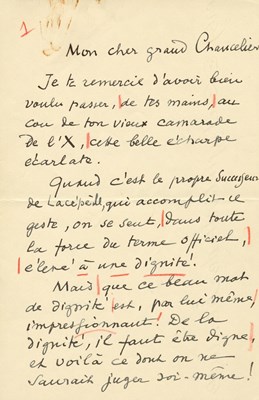 1
Mon cher grand Chancelier
Je te remercie d'avoir bien
voulu passer, de tes mains, au
cou de ton vieux camarade
de l'X, cette belle écharpe
écarlate.
Quand c'est le propre successeur
de Lacépède, qui accomplit ce
geste, on se sent, dans toute
la force du terme officiel,
élevé à une dignité!
Mais que ce beau mot
de dignité est, par lui même,
impressionnant! De la
dignité, il faut être digne,
et voilà ce dont on ne
saurait juger soi-même!